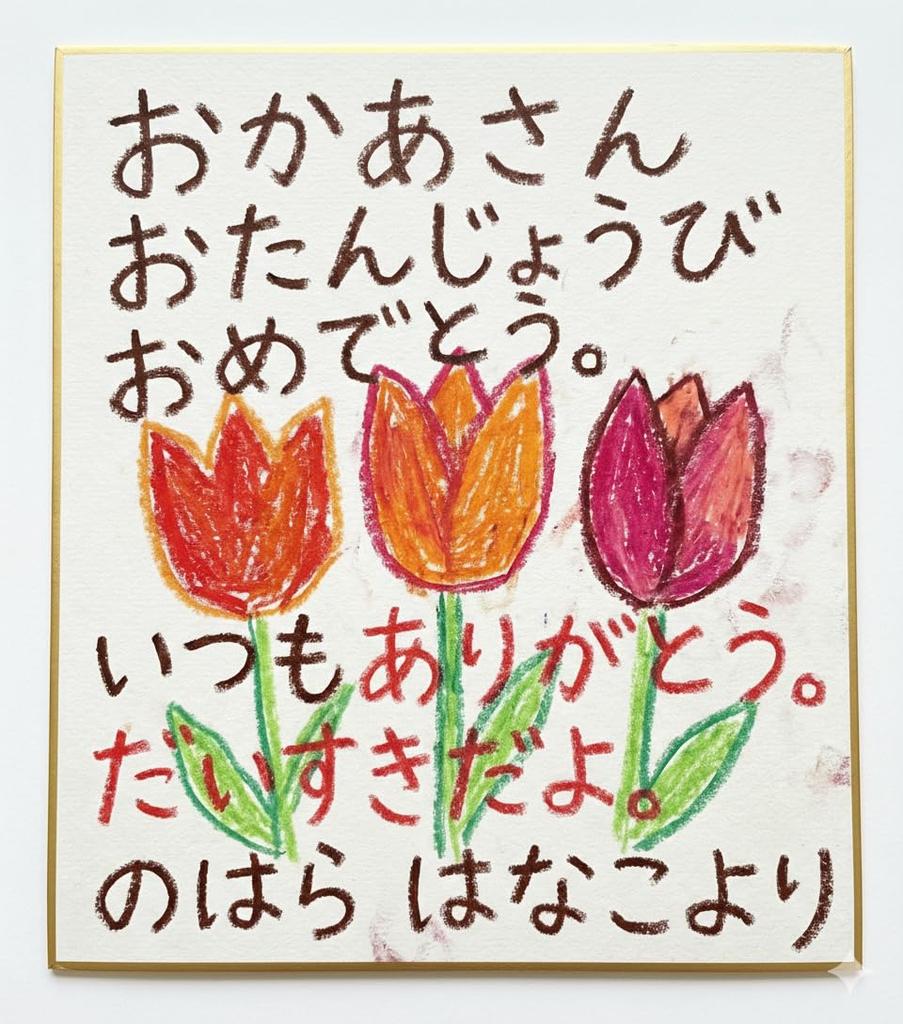 おかあさん
おたんじょうび
おめでとう。
いつもありがとう。
だいすきだよ。
のはら はなこより